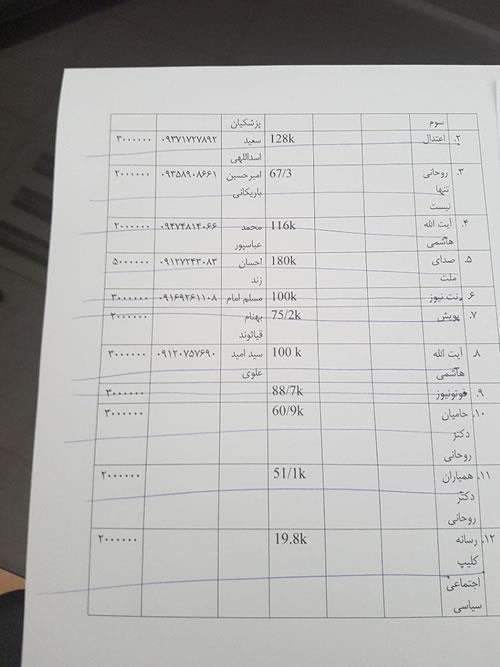 سوم پزشکیان
۲. اعتدال 128k سعید ۰۹۳۷۱۷۲۷۸۹۲ ۳۰۰۰۰۰۰
اسداللهی
۳. روحانی 67/3 امیرحسین ۰۹۳۵۸۹۰۸۶۶۱ ۲۰۰۰۰۰۰
تنها باریکانی
نیست
۴. آیت الله 116k محمد ۰۹۳۷۴۸۱۴۰۶۶ ۲۰۰۰۰۰۰
هاشمی عباسپور
۵. صدای 180k احسان ۰۹۱۲۷۲۴۳۰۸۳ ۵۰۰۰۰۰۰
ملت زند
۶. نت نیوز 100k مسلم امام ۰۹۱۶۹۲۶۱۱۰۸ ۳۰۰۰۰۰۰
۷. پویش 75/2k بهنام ۲۰۰۰۰۰۰
قیاثوند
۸. آیت الله 100 k سید امید ۰۹۱۲۰۷۵۷۶۹۰ ۳۰۰۰۰۰۰
هاشمی علوی
۹. فوتونیوز 88/7k ۳۰۰۰۰۰۰
۱۰. حامیان 60/9k ۳۰۰۰۰۰۰
دکتر
روحانی
۱۱. همیاران 51/1k ۲۰۰۰۰۰۰
دکتر
روحانی
۱۲. رسانه 19.8k ۲۰۰۰۰۰۰
کلیپ
اجتماعی
سیاسی